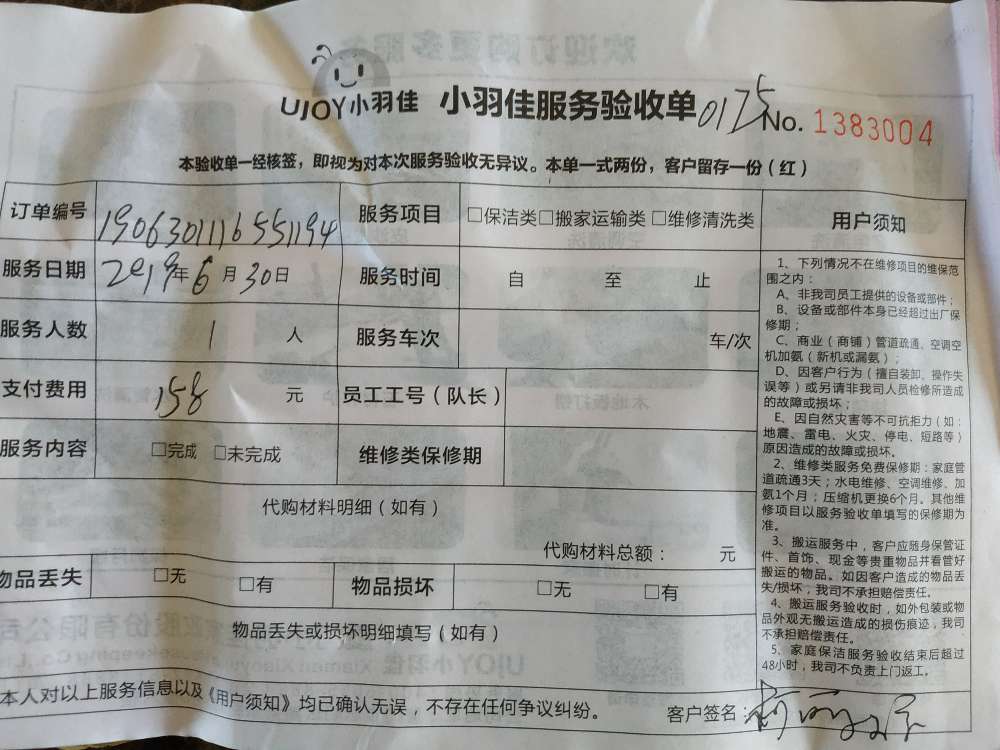 UJOY小羽佳 小羽佳服务验收单 0175 No. 1383004
本验收单一经核签，即视为对本次服务验收无异议。本单一式两份，客户留存一份（红）
订单编号 1906301116551194 服务项目 □保洁类□搬家运输类 □维修清洗类
服务日期 2019年6月30日 服务时间 自 至 止
服务人数 1 人 服务车次 车/次
支付费用 158 元 员工工号（队长）
服务内容 □完成 □未完成 维修类保修期
代购材料明细（如有）
代购材料总额： 元
物品丢失 □无 □有 物品损坏 □无 □有
物品丢失或损坏明细填写（如有）
本人对以上服务信息以及《用户须知》均已确认无误，不存在任何争议纠纷。
客户签名：
用户须知
1、下列情况不在维修项目的维保范
围之内：
A、非我司员工提供的设备或部件；
B、设备或部件本身已经超过出厂保
修期；
C、商业（商铺）管道疏通、空调空
机加氨（新机或漏氨）；
D、因客户行为（擅自装卸、操作失
误等）或另请非我司人员检修所造成
的故障或损坏；
E、因自然灾害等不可抗拒力（如：
地震、雷电、火灾、停电、短路等）
原因造成的故障或损坏。
2、维修类服务免费保修期：家庭管
道疏通3天；水电维修、空调维修、加
氨1个月；压缩机更换6个月。其他维
修项目以服务验收单填写的保修期为
准。
3、搬运服务中，客户应随身保管证
件、首饰、现金等贵重物品并看管好
搬运的物品。如因客户造成的物品丢
失/损坏，我司不承担赔偿责任。
4、搬运服务验收时，如外包装或物
品外观无搬运造成的损伤痕迹，我司
不承担赔偿责任。
5、家庭保洁服务验收结束后超过
48小时，我司不负责上门返工。